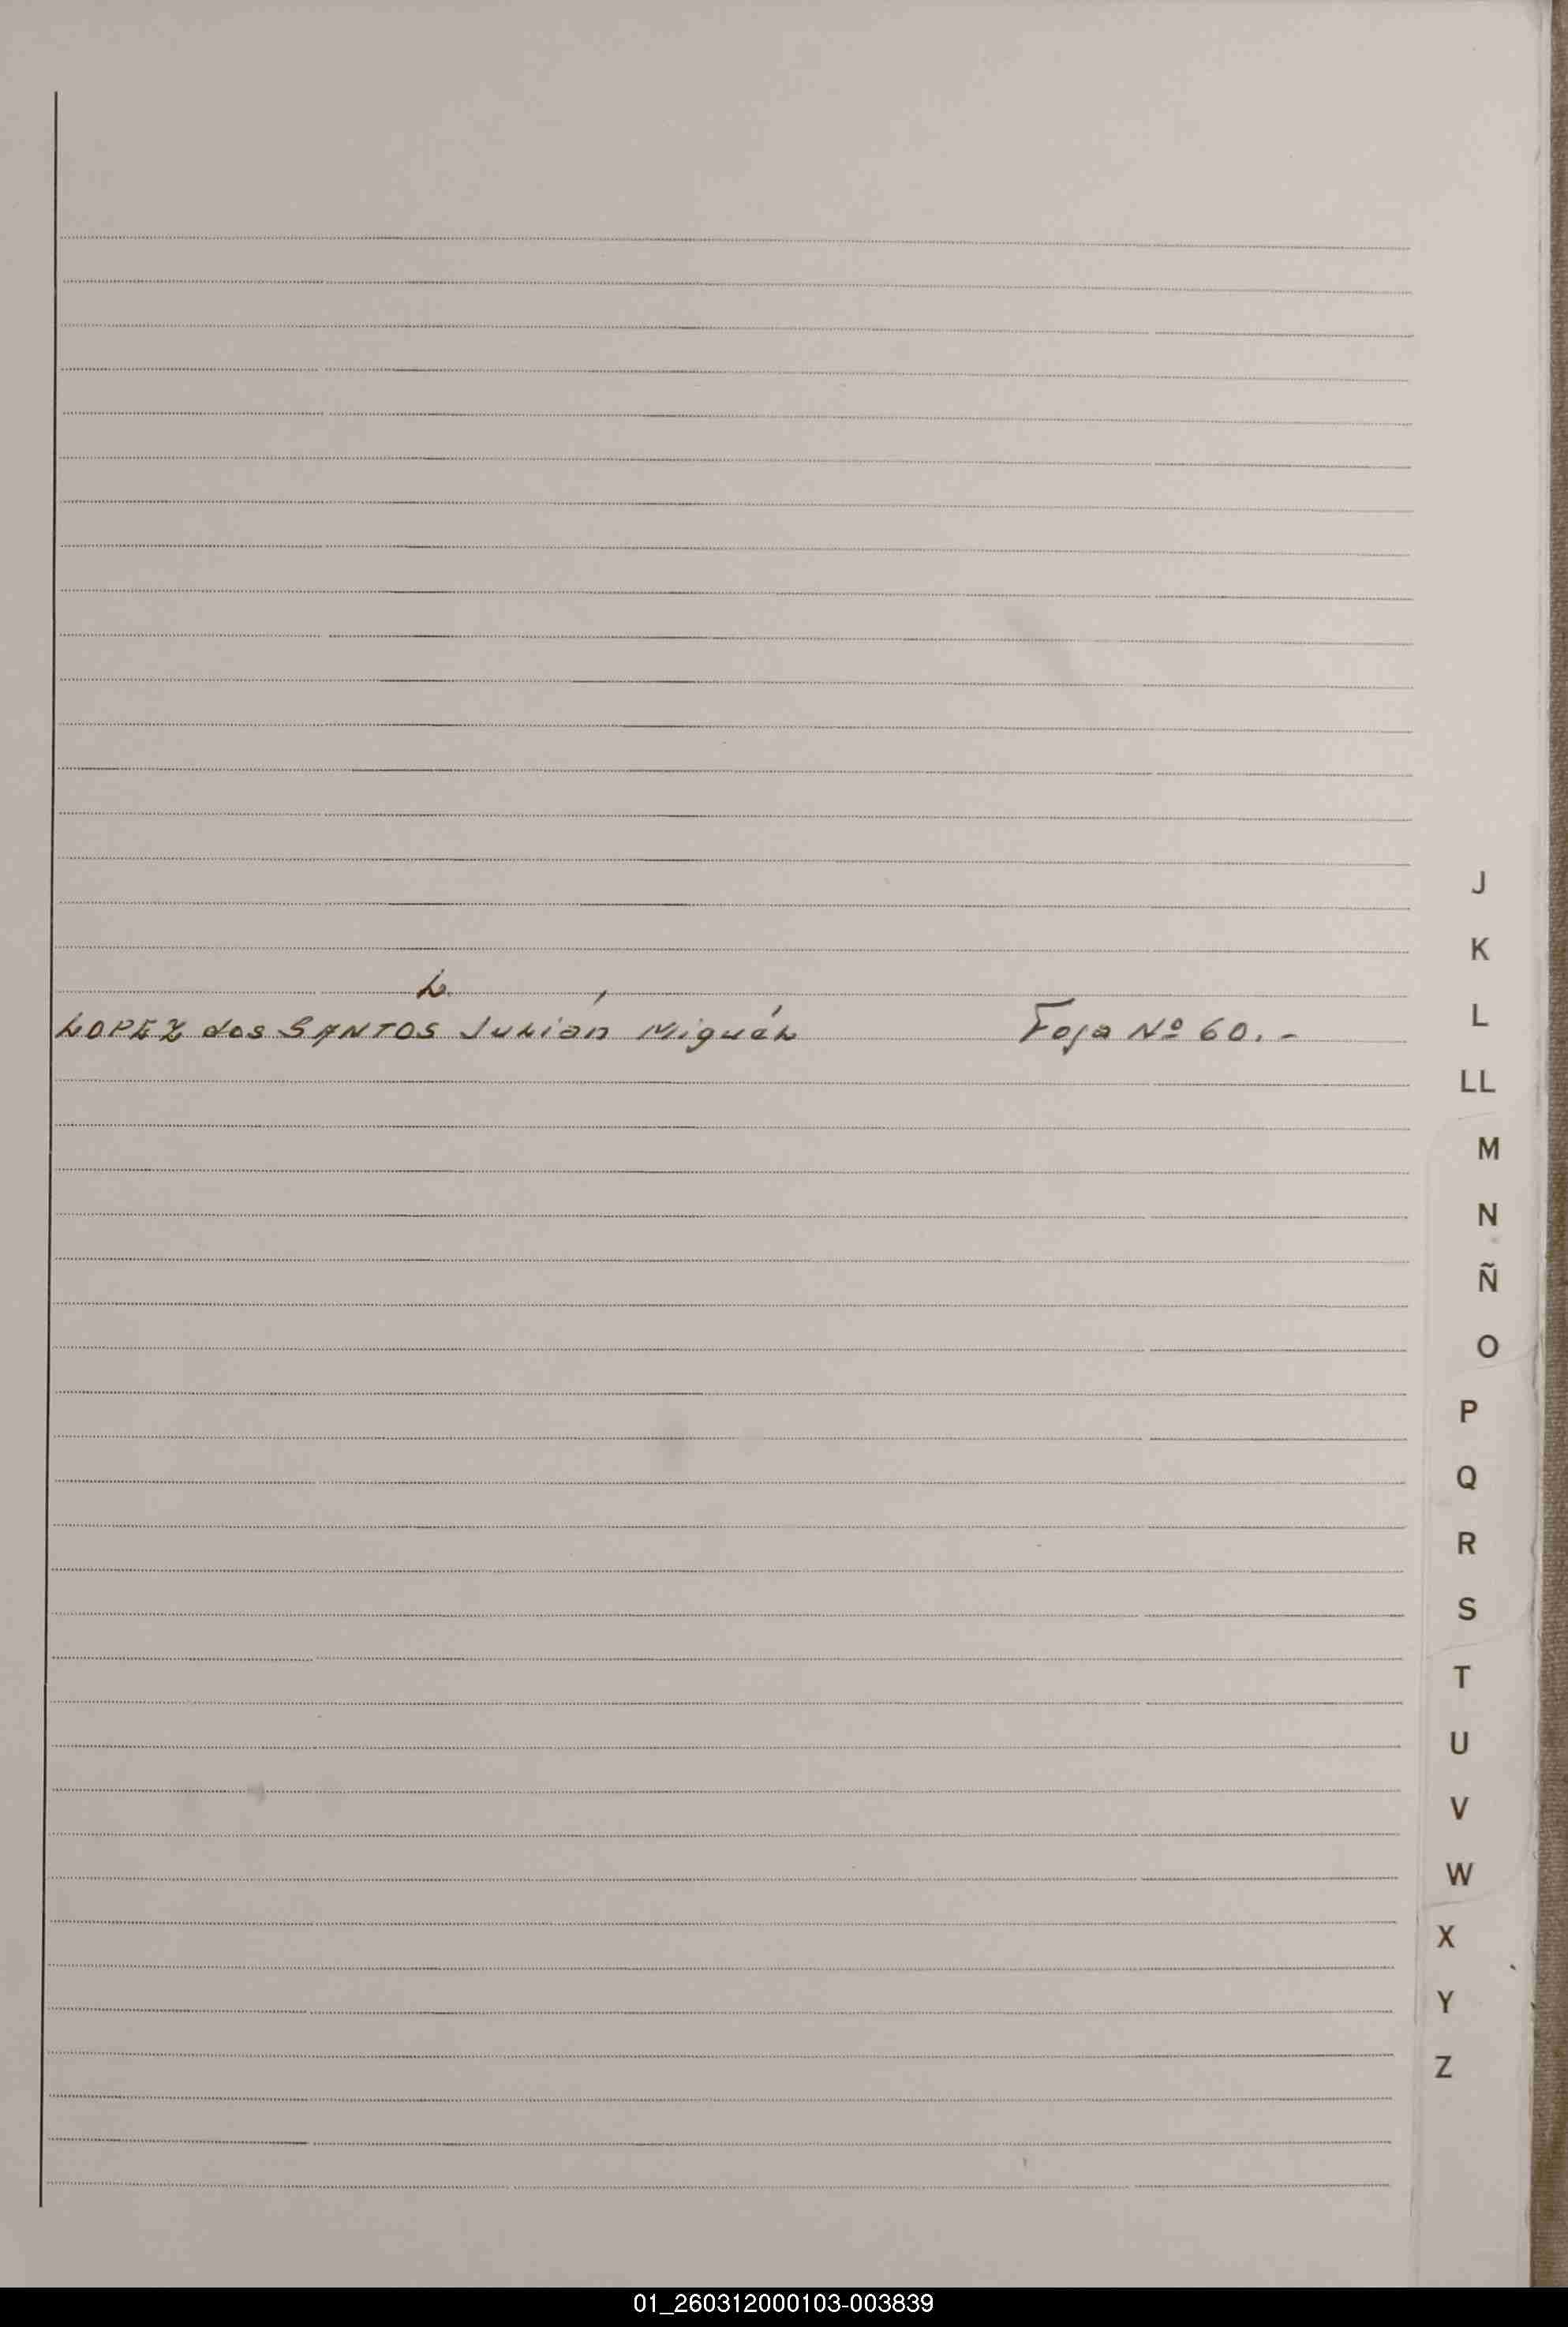 J
K
L.
LOPEZ dos SANTOS Julián Miguél Foja Nº 60.-
L
LL
M
N
Ñ
O
P
Q
R
S
T
U
V
W
X
Y
Z
01_260312000103-003839